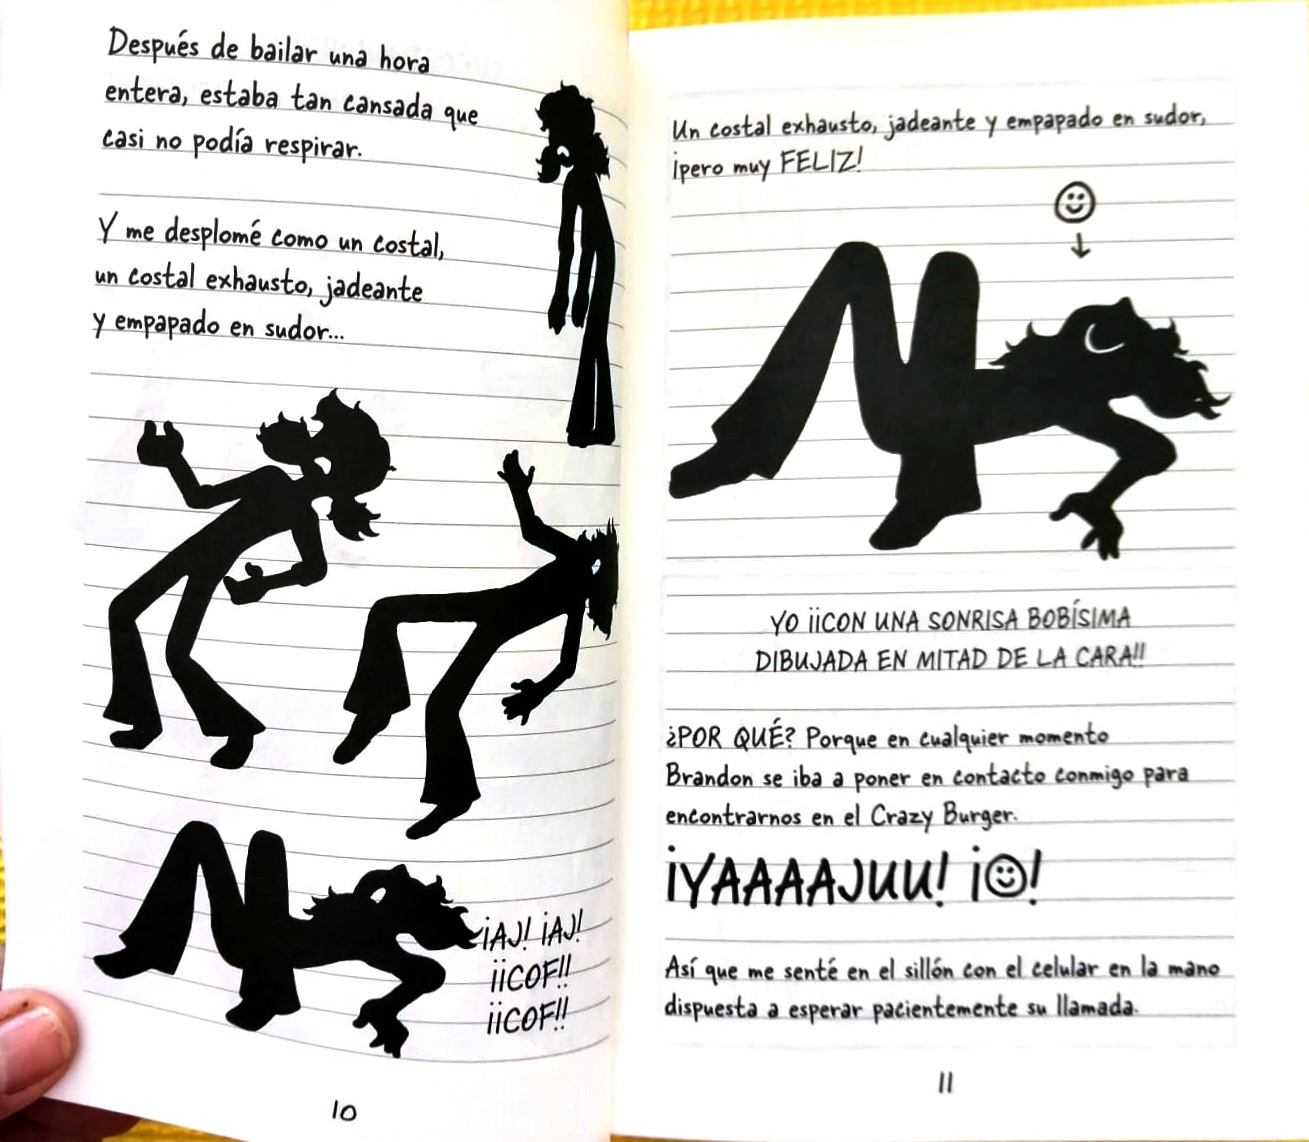 Después de bailar una hora
entera, estaba tan cansada que
casi no podía respirar.
Y me desplomé como un costal,
un costal exhausto, jadeante
y empapado en sudor...
¡AJ! ¡AJ!
¡¡COF!!
¡¡COF!!
10
Un costal exhausto, jadeante y empapado en sudor,
¡pero muy FELIZ!
YO ¡¡CON UNA SONRISA BOBÍSIMA
DIBUJADA EN MITAD DE LA CARA!!
¿POR QUÉ? Porque en cualquier momento
Brandon se iba a poner en contacto conmigo para
encontrarnos en el Crazy Burger.
¡YAAAAJUU! ¡☺!
Así que me senté en el sillón con el celular en la mano
dispuesta a esperar pacientemente su llamada.
11